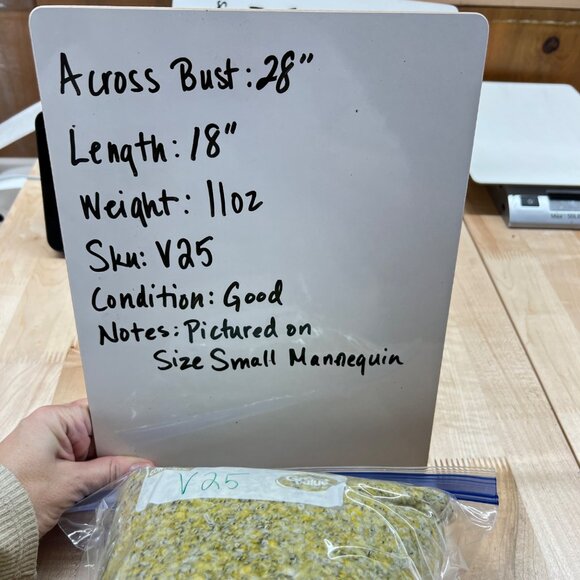 Across Bust: 28"
Length: 18"
Weight: 11oz
Sku: V25
Condition: Good
Notes: Pictured on
Size Small Mannequin
V25